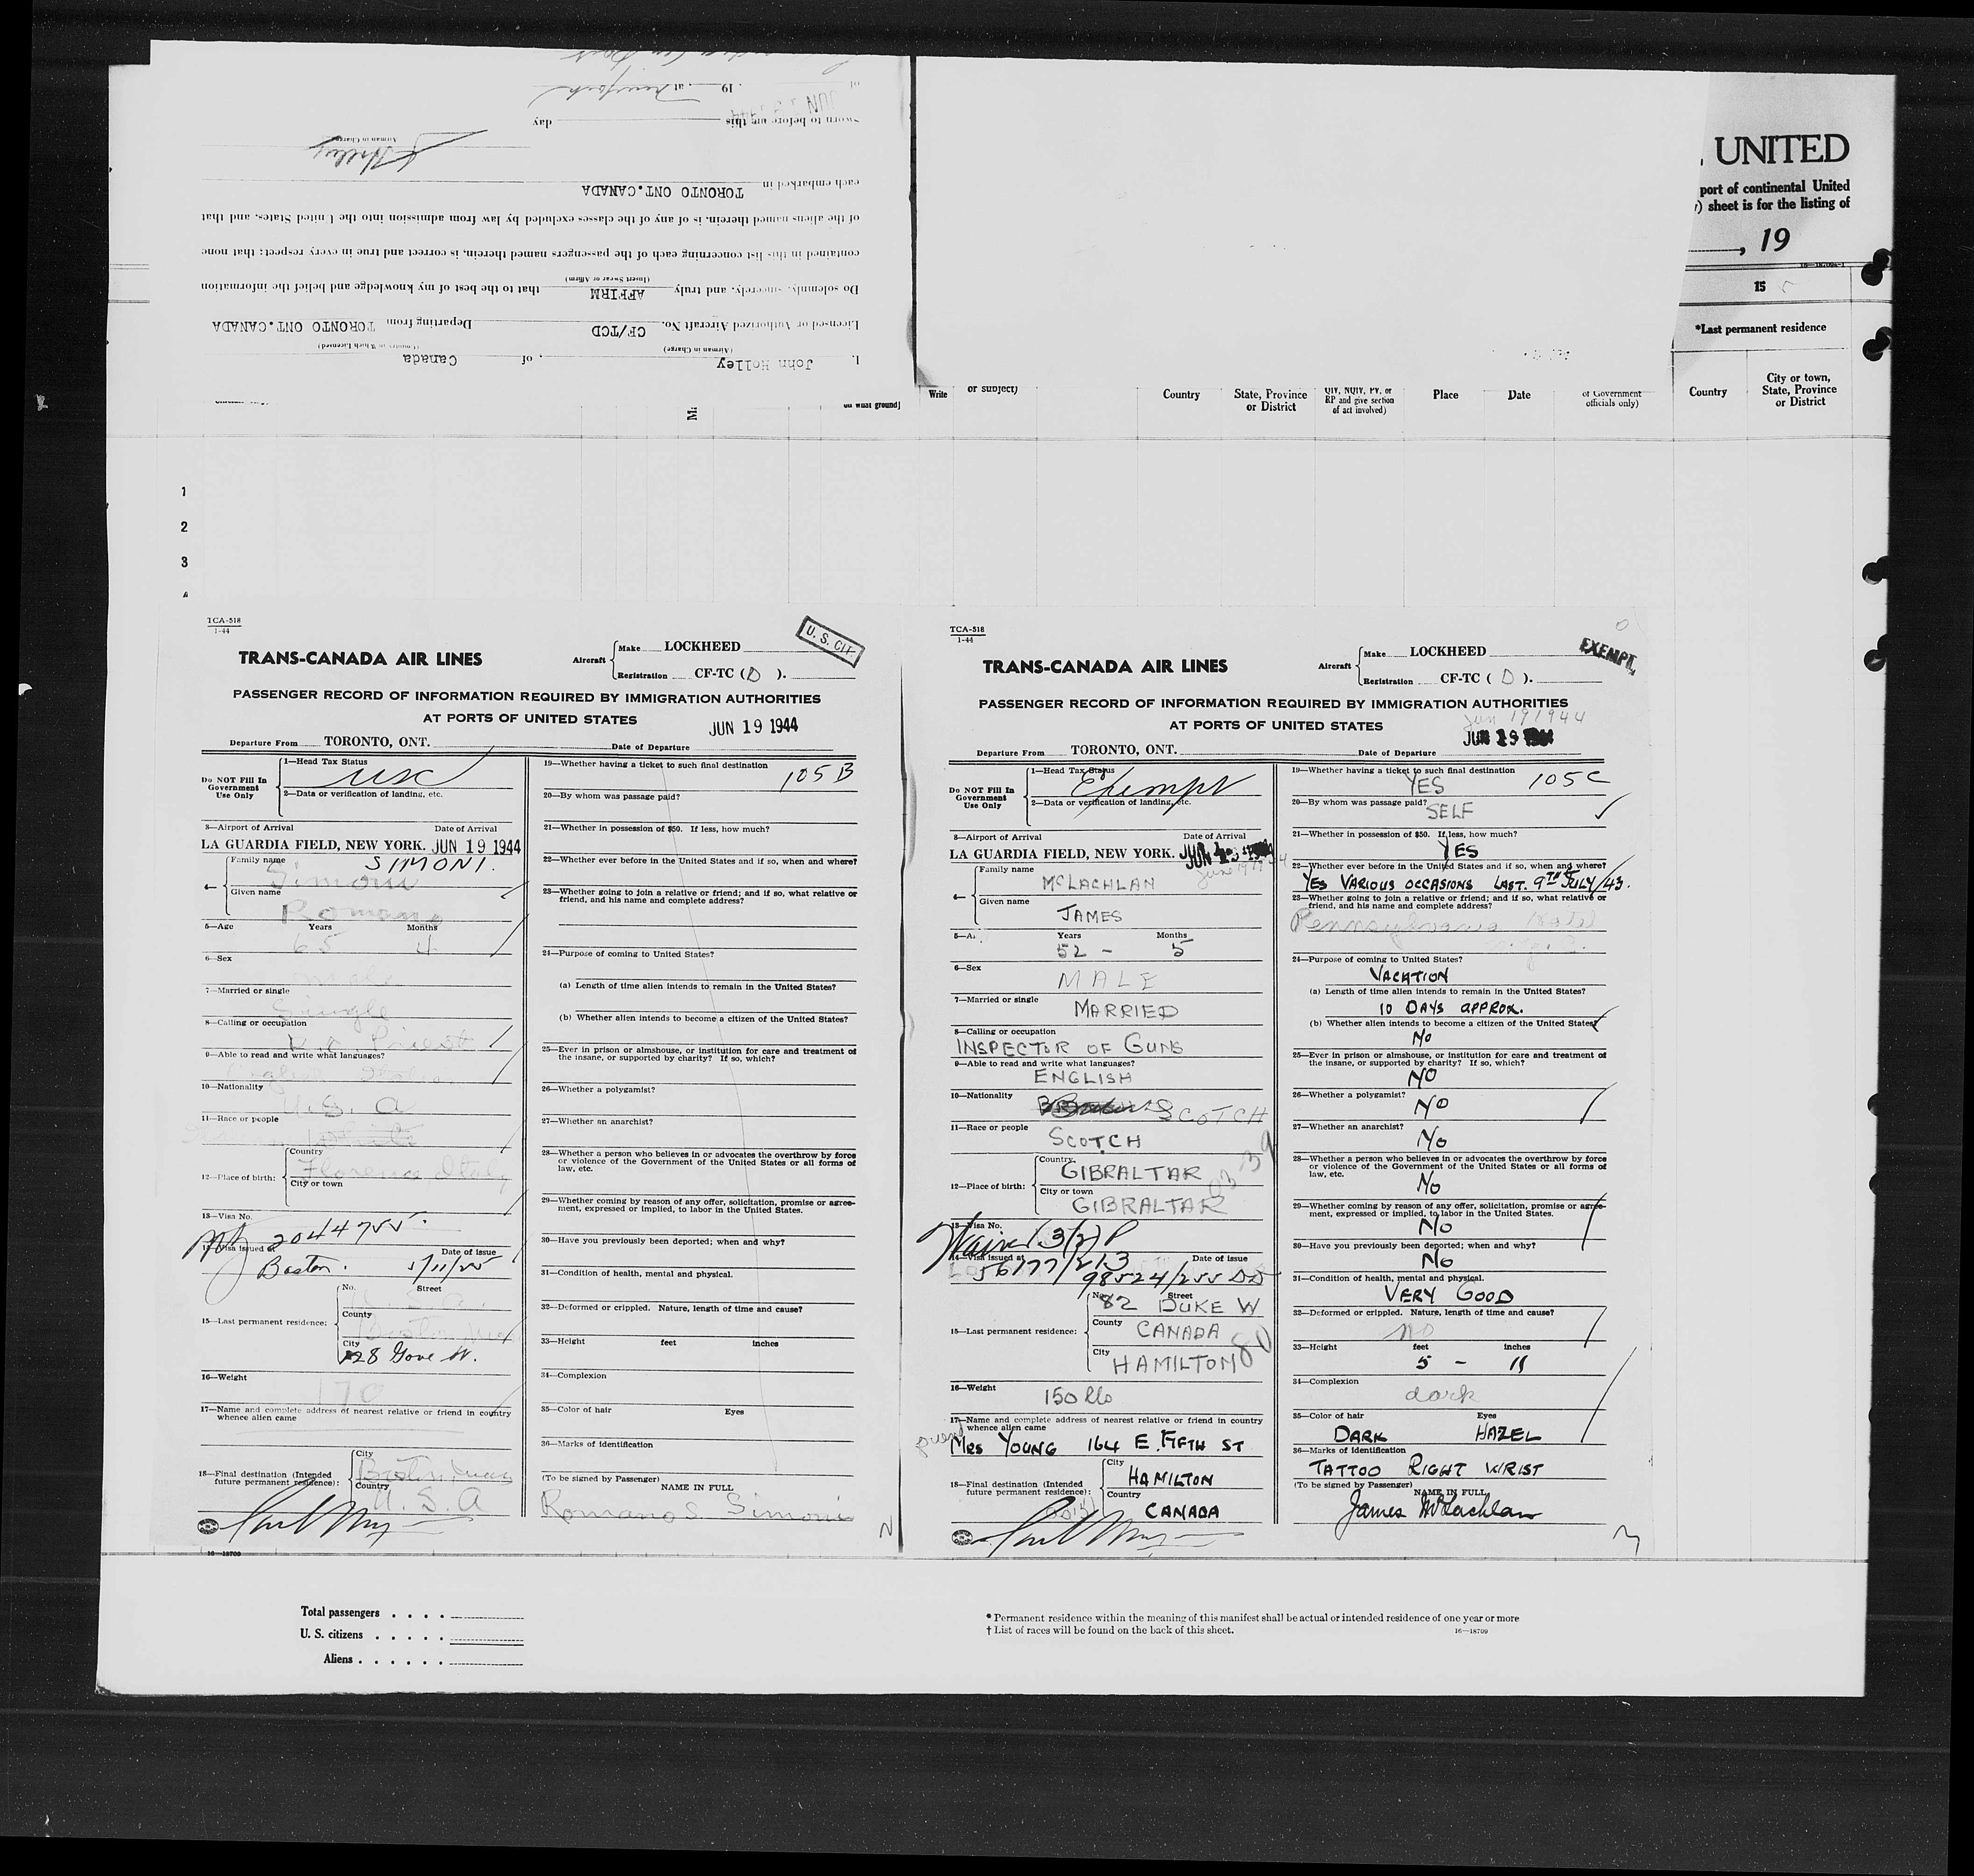 I, John Holley, of Canada
(Airman in Charge) (Country in Which Licensed)
Licensed or Authorized Aircraft No. CF/TCD Departing from TORONTO ONT. CANADA
Do solemnly, sincerely, and truly AFFIRM that to the best of my knowledge and belief the information
(Insert Swear or Affirm)
contained in this list concerning each of the passengers named therein, is correct and true in every respect: that none
of the aliens named therein, is of any of the classes excluded by law from admission into the United States, and that
each embarked in TORONTO ONT. CANADA
J Holley
Airman in Charge
Sworn to before me this day
JUN 19 1944
19 at New York
. UNITED
port of continental United
) sheet is for the listing of
, 19
15
*Last permanent residence
on what ground)
Write
or subject)
Country
State, Province
or District
QIV, NQIV, PV, or
RP and give section
of act involved)
Place
Date
of Government
officials only)
Country
City or town,
State, Province
or District
1
2
3
TCA-518
1-44
TRANS-CANADA AIR LINES
Aircraft
Make LOCKHEED
Registration CF-TC ( D ).
U. S. CIT.
PASSENGER RECORD OF INFORMATION REQUIRED BY IMMIGRATION AUTHORITIES
AT PORTS OF UNITED STATES
JUN 19 1944
Departure From TORONTO, ONT. Date of Departure
Do NOT Fill In
Government
Use Only
1—Head Tax Status
USC
2—Data or verification of landing, etc.
3—Airport of Arrival Date of Arrival
LA GUARDIA FIELD, NEW YORK. JUN 19 1944
4—
Family name SIMONI.
Simoni
Given name
Romano
5—Age Years Months
65 4
6—Sex
male
7—Married or single
Single
8—Calling or occupation
R.C. Priest
9—Able to read and write what languages?
English Italian
10—Nationality
U.S.A
11—Race or people
White
12—Place of birth:
Country
Florence, Italy
City or town
13—Visa No.
2044755.
14—Visa issued at Date of issue
Boston. 5/11/25
15—Last permanent residence:
No. Street
U.S.A.
County
Boston, Mass
City
128 Gove St.
16—Weight
170
17—Name and complete address of nearest relative or friend in country
whence alien came
18—Final destination (Intended
future permanent residence):
City
Boston, Mass
Country
U.S.A
16—18709
19—Whether having a ticket to such final destination
105 B
20—By whom was passage paid?
21—Whether in possession of $50. If less, how much?
22—Whether ever before in the United States and if so, when and where?
23—Whether going to join a relative or friend; and if so, what relative or
friend, and his name and complete address?
24—Purpose of coming to United States?
(a) Length of time alien intends to remain in the United States?
(b) Whether alien intends to become a citizen of the United States?
25—Ever in prison or almshouse, or institution for care and treatment of
the insane, or supported by charity? If so, which?
26—Whether a polygamist?
27—Whether an anarchist?
28—Whether a person who believes in or advocates the overthrow by force
or violence of the Government of the United States or all forms of
law, etc.
29—Whether coming by reason of any offer, solicitation, promise or agree-
ment, expressed or implied, to labor in the United States.
30—Have you previously been deported; when and why?
31—Condition of health, mental and physical.
32—Deformed or crippled. Nature, length of time and cause?
33—Height feet inches
34—Complexion
35—Color of hair Eyes
36—Marks of identification
(To be signed by Passenger)
NAME IN FULL
Romano S. Simoni
TCA-518
1-44
TRANS-CANADA AIR LINES
Aircraft
Make LOCKHEED
Registration CF-TC ( D ).
EXEMPT.
PASSENGER RECORD OF INFORMATION REQUIRED BY IMMIGRATION AUTHORITIES
AT PORTS OF UNITED STATES
Jun 19 1944
JUN 19 1944
Departure From TORONTO, ONT. Date of Departure
Do NOT Fill In
Government
Use Only
1—Head Tax Status
Exempt
2—Data or verification of landing, etc.
3—Airport of Arrival Date of Arrival
LA GUARDIA FIELD, NEW YORK.
June 19/44
4—
Family name
McLACHLAN
Given name
JAMES
5—A Years Months
52 - 5
6—Sex
MALE
7—Married or single
MARRIED
8—Calling or occupation
INSPECTOR OF GUNS
9—Able to read and write what languages?
ENGLISH
10—Nationality
SCOTCH
11—Race or people
SCOTCH
12—Place of birth:
Country
GIBRALTAR
City or town
GIBRALTAR
13—Visa No.
Waiver 13(2)P
14—Visa issued at Date of issue
56177/213
98524/255
15—Last permanent residence:
No. Street
82 DUKE W
County
CANADA
City
HAMILTON
16—Weight
150 lbs
17—Name and complete address of nearest relative or friend in country
whence alien came
friend
MRS YOUNG 164 E. FIFTH ST
18—Final destination (Intended
future permanent residence):
City
HAMILTON
Country
CANADA
19—Whether having a ticket to such final destination
YES 105 C
20—By whom was passage paid?
SELF
21—Whether in possession of $50. If less, how much?
YES
22—Whether ever before in the United States and if so, when and where?
YES VARIOUS OCCASIONS LAST. 9TH JULY/43.
23—Whether going to join a relative or friend; and if so, what relative or
friend, and his name and complete address?
Pennsylvania Hotel
N.Y.C.
24—Purpose of coming to United States?
VACATION
(a) Length of time alien intends to remain in the United States?
10 DAYS APPROX.
(b) Whether alien intends to become a citizen of the United States?
No
25—Ever in prison or almshouse, or institution for care and treatment of
the insane, or supported by charity? If so, which?
NO
26—Whether a polygamist?
NO
27—Whether an anarchist?
No
28—Whether a person who believes in or advocates the overthrow by force
or violence of the Government of the United States or all forms of
law, etc.
No
29—Whether coming by reason of any offer, solicitation, promise or agree-
ment, expressed or implied, to labor in the United States.
No
30—Have you previously been deported; when and why?
No
31—Condition of health, mental and physical.
VERY GOOD
32—Deformed or crippled. Nature, length of time and cause?
no
33—Height feet inches
5 - 11
34—Complexion
dark
35—Color of hair Eyes
DARK HAZEL
36—Marks of identification
TATTOO RIGHT WRIST
(To be signed by Passenger)
NAME IN FULL
James McLachlan
Total passengers . . . .
U. S. citizens . . . . .
Aliens . . . . . .
* Permanent residence within the meaning of this manifest shall be actual or intended residence of one year or more
† List of races will be found on the back of this sheet.
16—18709